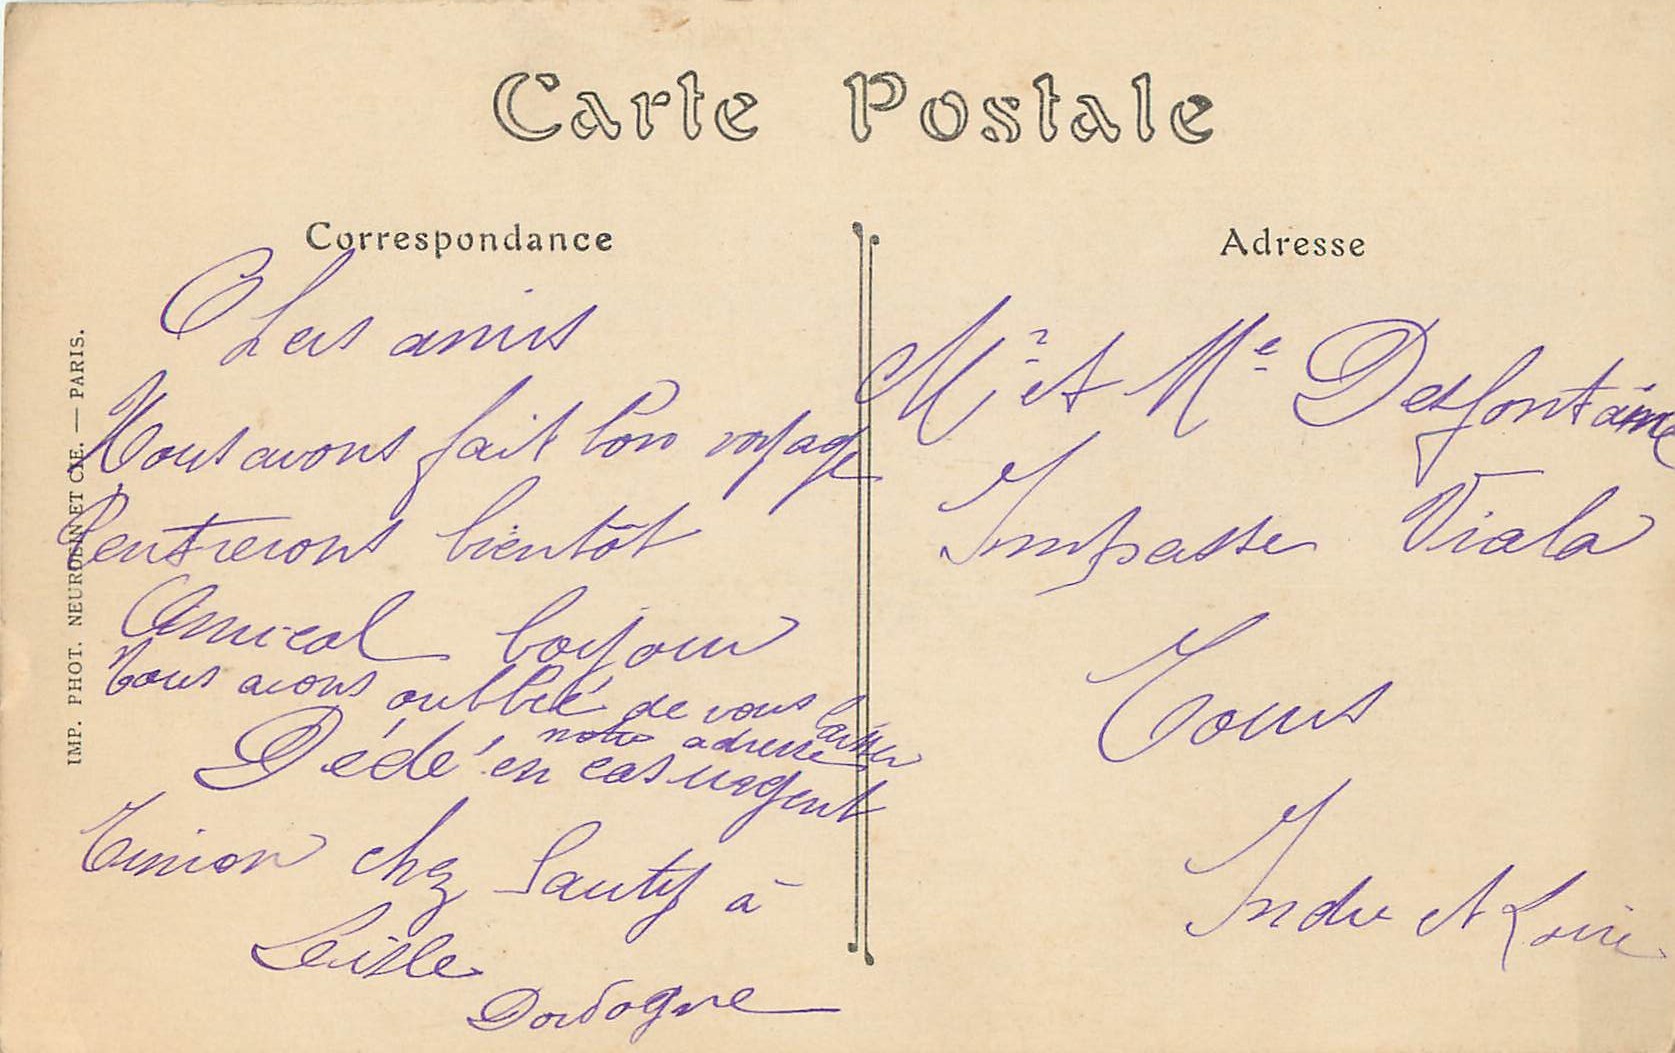 Carte Postale
Correspondance
Les amis
Nous avons fait bon voyage
Rentrerons bientôt
Amical boyour
Nous avons oublié de vous laisser
notre adresse
Dédé en cas urgent
chez Sautz à
Leisle
Dordogne
Adresse
Mr et Me Desfontaine
Impasse Viala
Tours
Indre et Loire
IMP. PHOT. NEURDEIN ET CIE. — PARIS.